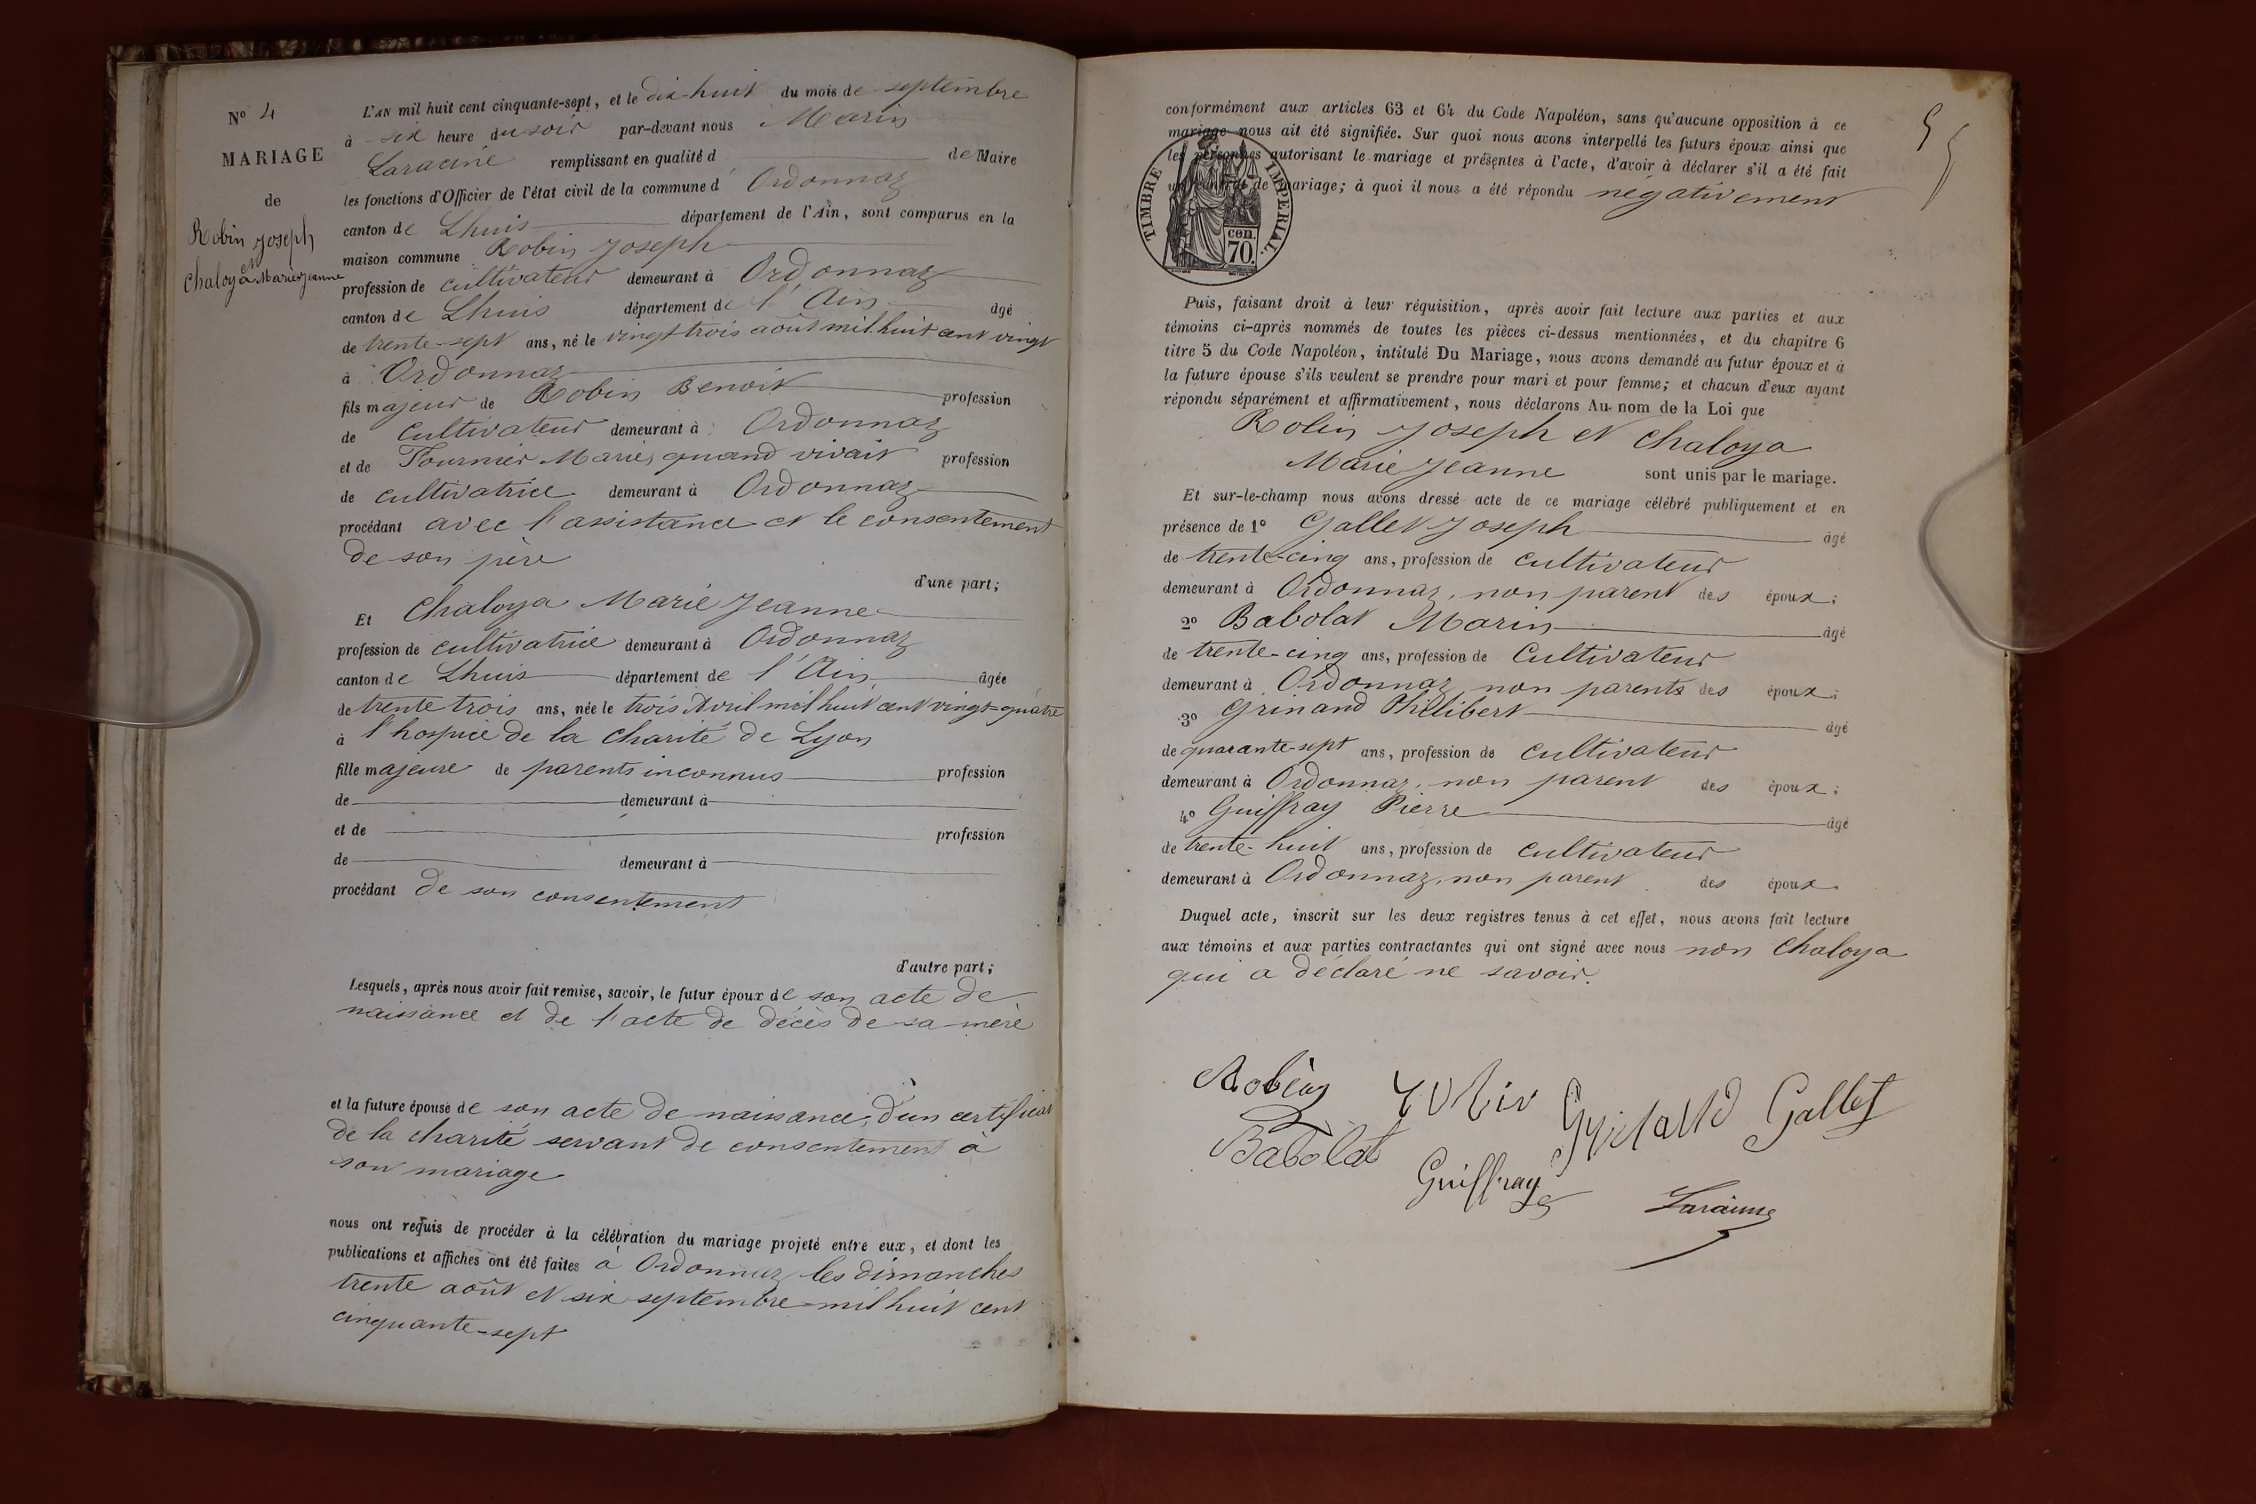 N° 4
MARIAGE
de
Robin Joseph
et
Chaloya Marie Jeanne
L'AN mil huit cent cinquante-sept, et le dix-huit du mois de septembre
à six heure du soir par-devant nous Marin
Laracine remplissant en qualité d de Maire
les fonctions d'Officier de l'état civil de la commune d' Ordonnaz
canton de Lhuis département de l'Ain, sont comparus en la
maison commune Robin Joseph
profession de cultivateur demeurant à Ordonnaz
canton de Lhuis département de l'Ain âgé
de trente-sept ans, né le vingt trois août mil huit cent vingt
à Ordonnaz
fils majeur de Robin Benoit profession
de cultivateur demeurant à Ordonnaz
et de Fournier Marie, quand vivait profession
de cultivatrice demeurant à Ordonnaz
procédant avec l'assistance et le consentement
de son père
d'une part;
Et Chaloya Marie Jeanne
profession de cultivatrice demeurant à Ordonnaz
canton de Lhuis département de l'Ain âgée
de trente trois ans, née le trois Avril mil huit cent vingt-quatre
à l'hospice de la Charité de Lyon
fille majeure de parents inconnus profession
de demeurant à
et de profession
de demeurant à
procédant de son consentement
d'autre part;
Lesquels, après nous avoir fait remise, savoir, le futur époux de son acte de
naissance et de l'acte de décès de sa mère
et la future épouse de son acte de naissance, d'un certificat
de la charité servant de consentement à
son mariage
nous ont requis de procéder à la célébration du mariage projeté entre eux, et dont les
publications et affiches ont été faites à Ordonnaz les dimanches
trente août et six septembre mil huit cent
cinquante-sept
conformément aux articles 63 et 64 du Code Napoléon, sans qu'aucune opposition à ce
mariage nous ait été signifiée. Sur quoi nous avons interpellé les futurs époux ainsi que
les personnes autorisant le mariage et présentes à l'acte, d'avoir à déclarer s'il a été fait
un contrat de mariage; à quoi il nous a été répondu négativement
TIMBRE IMPERIAL.
cen.
70.
Puis, faisant droit à leur réquisition, après avoir fait lecture aux parties et aux
témoins ci-après nommés de toutes les pièces ci-dessus mentionnées, et du chapitre 6
titre 5 du Code Napoléon, intitulé Du Mariage, nous avons demandé au futur époux et à
la future épouse s'ils veulent se prendre pour mari et pour femme; et chacun d'eux ayant
répondu séparément et affirmativement, nous déclarons Au nom de la Loi que
Robin Joseph et Chaloya
Marie Jeanne sont unis par le mariage.
Et sur-le-champ nous avons dressé acte de ce mariage célébré publiquement et en
présence de 1° Gallet Joseph âgé
de trente-cinq ans, profession de cultivateur
demeurant à Ordonnaz, non parent des époux;
2° Babolat Marin âgé
de trente-cinq ans, profession de Cultivateur
demeurant à Ordonnaz non parents des époux;
3° Grinand Philibert âgé
de quarante-sept ans, profession de cultivateur
demeurant à Ordonnaz, non parent des époux;
4° Guiffray Pierre âgé
de trente-huit ans, profession de cultivateur
demeurant à Ordonnaz, non parent des époux.
Duquel acte, inscrit sur les deux registres tenus à cet effet, nous avons fait lecture
aux témoins et aux parties contractantes qui ont signé avec nous non Chaloya
qui a déclaré ne savoir.
Robin Gallet
Babolat
Guiffray